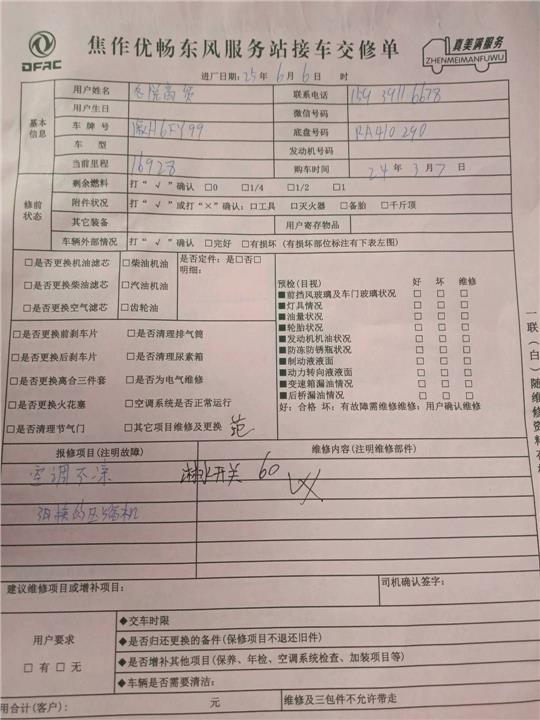 DFAC
焦作优畅东风服务站接车交修单
真美满服务
ZHENMEIMANFUWU
进厂日期:25年6月6日 时
基本信息
用户姓名
联系电话 159 3911 6678
用户生日 微信号码
车牌号 H6FY99 底盘号码 RA410290
车型 发动机号码
当前里程 16928 购车时间 24年3月7日
修前状态
剩余燃料 打“√”确认 □0 □1/4 □1/2 □1
附件状况 打“√”或打“×”确认:□工具 □灭火器 □备胎 □千斤顶
其它装备 用户寄存物品
车辆外部情况 打“√”确认 □完好 □有损坏(有损坏部位标注有下表左图)
□是否更换机油滤芯 □柴油机油 是否定件:是□否□
明细:
□是否更换柴油滤芯 □汽油机油
□是否更换空气滤芯 □齿轮油
预检(目视) 好 坏 维修
■前挡风玻璃及车门玻璃状况 □ □ □
■灯具情况 □ □ □
■油量状况 □ □ □
■轮胎状况 □ □ □
■发动机机油状况 □ □ □
■防冻防锈瓶状况 □ □ □
■制动液液面 □ □ □
■动力转向液液面 □ □ □
■变速箱漏油情况 □ □ □
■后桥漏油情况 □ □ □
好:合格 坏:有故障需维修维修:用户确认维修
□是否更换前刹车片 □是否清理排气筒
□是否更换后刹车片 □是否清理尿素箱
□是否更换离合三件套 □是否为电气维修
□是否更换火花塞 □空调系统是否正常运行
□是否清理节气门 □其它项目维修及更换 范
报修项目(注明故障) 维修内容(注明维修部件)
空调不凉 开关 60
压缩机
建议维修项目或增补项目: 司机确认签字:
用户要求
□有 □无
◆交车时限
◆是否归还更换的备件(保修项目不退还旧件)
◆是否增补其他项目(保养、年检、空调系统检查、加装项目等)
◆车辆是否需要清洁:
用合计(客户): 元 维修及三包件不允许带走
一联(白)随维修资料